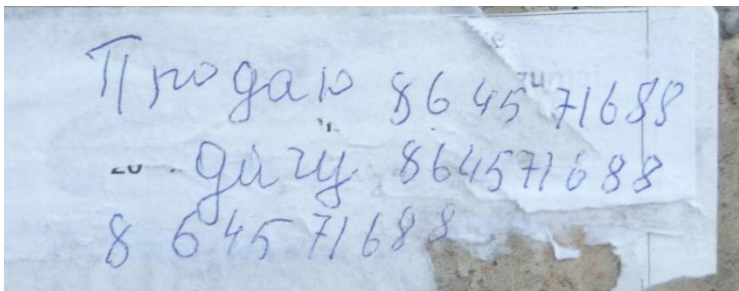 Продаю 8 6 45 71688
дачу 864571688
8 6 45 71688